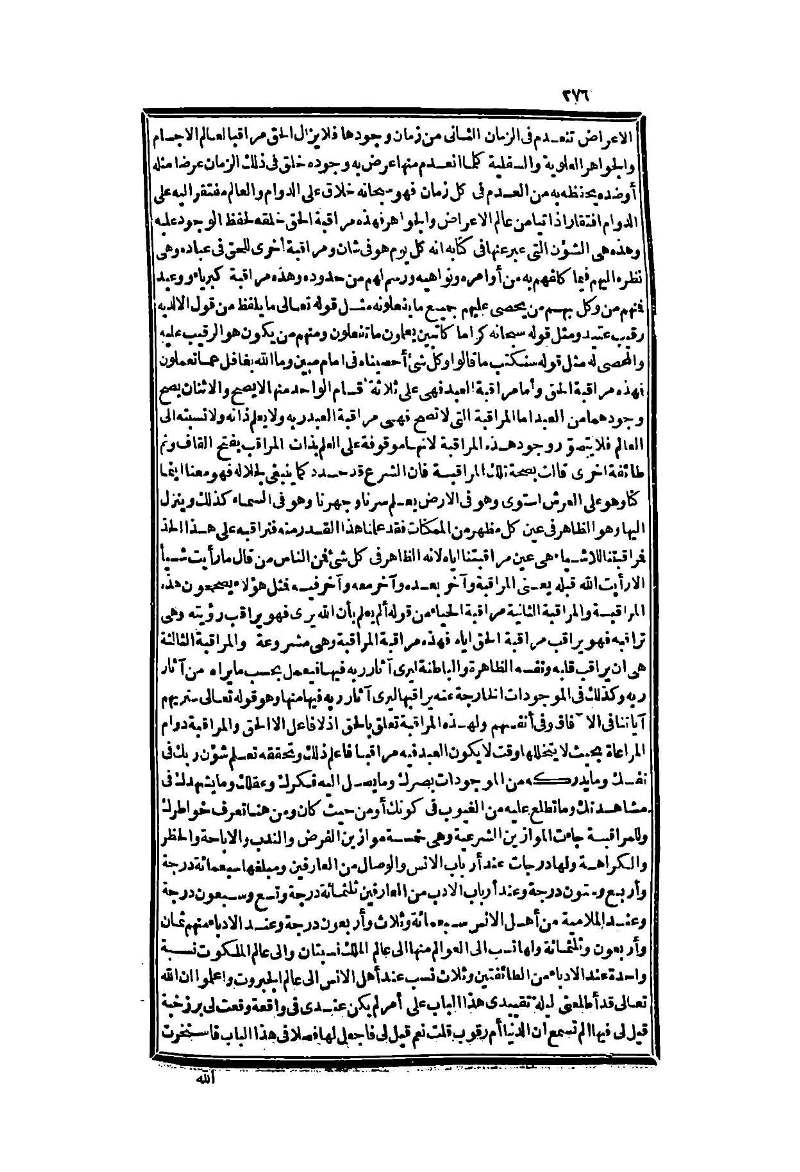 ٣٧٦
الاعراض تنعدم فى الزمان الثانى من زمان وجودها فلا يزال الحق مراقبا لعالم الاجسام
والجواهر العلوية والسفلية كلما انعدم منها عرض به وجوده خلق فى ذلك الزمان عرضا مثله
أوضده يحفظه به من العدم فى كل زمان فهو سبحانه خلاق على الدوام والعالم مفتقر اليه على
الدوام افتقارا ذاتيا من عالم الاعراض والجواهر فهذه مراقبة الحق خلقه لحفظ الوجود عليه
وهذه هى الشؤن التى عبر عنها فى كتابه انه كل يوم هو فى شان ومراقبة أخرى للحق فى عباده وهى
نظره اليهم فيما كلفهم به من أوامره ونواهيه ورسم لهم من حدوده وهذه مراقبة كبرياء ووعيد
فمنهم من وكل بهم من يحصى عليهم جميع ما يفعلونه مثل قوله تعالى ما يلفظ من قول الا لديه
رقيب عتيد ومثل قوله سبحانه كراما كاتبين يعلمون ما تفعلون ومنهم من يكون هو الرقيب عليه
والمحصى له مثل قوله سنكتب ما قالوا وكل شئ أحصيناه فى امام مبين وما الله بغافل عما تعملون
فهذه مراقبة الحق وأما مراقبة العبد فهى على ثلاثة أقسام الواحد منها لا يصح والاثنان يصح
وجودهما من العبد اما المراقبة التى لا تصح فهى مراقبة العبد ربه ولا يعلم ذاته ولا نسبته الى
العالم فلا يتصوّر وجود هذه المراقبة لانها موقوفة على العلم بذات المراقب بفتح القاف وثم
طائفة أخرى قالت بصحة تلك المراقبة فان الشرع قد حدد كما ينبغى لجلاله فهو معنا اينما
كنا وهو على العرش استوى وهو فى الارض يعلم سرنا وجهرنا وهو فى السماء كذلك وينزل
اليها وهو الظاهر فى عين كل مظهر من الممكنات فقد علمنا هذا القدر منه فنراقبه على هذا الحدّ
فراقبتنا للاشياء هى عين مراقبتنا اياه لانه الظاهر فى كل شئ فمن الناس من قال ما رأيت شيأ
الا رأيت الله قبله يعنى المراقبة وآخر بعده وآخر معه وآخر فيه فمثل هؤلاء يصححون هذه
المراقبة والمراقبة الثانية مراقبة الحياء من قوله ألم يعلم بأن الله يرى فهو يراقب رؤيته وهى
تراقبه فهو يراقب مراقبة الحق اياه فهذه مراقبة المراقبة وهى مشروعة والمراقبة الثالثة
هى ان يراقب قلبه ونفسه الظاهرة والباطنة ليرى آثار ربه فيها فيعمل بحسب ما يراه من آثار
ربه وكذلك فى الموجودات الخارجة عنه يراقبها ليرى آثار ربه فيها منها وهو قوله تعالى سنريهم
آياتنا فى الآفاق وفى أنفسهم ولهذه المراقبة تعلق بالحق اذ لا فاعل الا الحق والمراقبة دوام
المراعاة بحيث لا يتخللها وقت لا يكون العبد فيه مراقبا فاعلم ذلك وتحققه تعلم شؤن ربك فى
نفسك وما يدركه من الموجودات بصرك وما يصل اليه فكرك وعقلك وما يشهدك فى
مشاهدتك وما تطلع عليه من الغيوب فى كونك أو من حيث كان ومن هنا تعرف خواطرك
وللمراقبة جاءت الموازين الشرعية وهى خمسة موازين الفرض والندب والاباحة والحظر
والكراهة ولها درجات عند أرباب الانس والوصال من العارفين ومبلغها سبعمائة درجة
وأربع وستون درجة وعند أرباب الادب من العارفين ثلثمائة درجة وتسع وسبعون درجة
وعند الملامية من أهل الانس سبعمائة وثلاث وأربعون درجة وعند الادباء منهم ثمان
وأربعون وثلثمائة ولها نسب الى العوالم منها الى عالم الملك نسبتان والى عالم الملكوت نسبة
واحدة عند الادباء من الطائفتين وثلاث نسب عند أهل الانس الى عالم الجبروت واعلموا ان الله
تعالى قد أطلعنى ليلة تقييدى هذا الباب على أمر لم يكن عندى فى واقعة وقعت لى برزخية
قيل لى فيها ألم تسمع أن الدنيا أم رقوب قلت نعم قيل لى فاجعل لها فصلا فى هذا الباب فاستخرت
الله